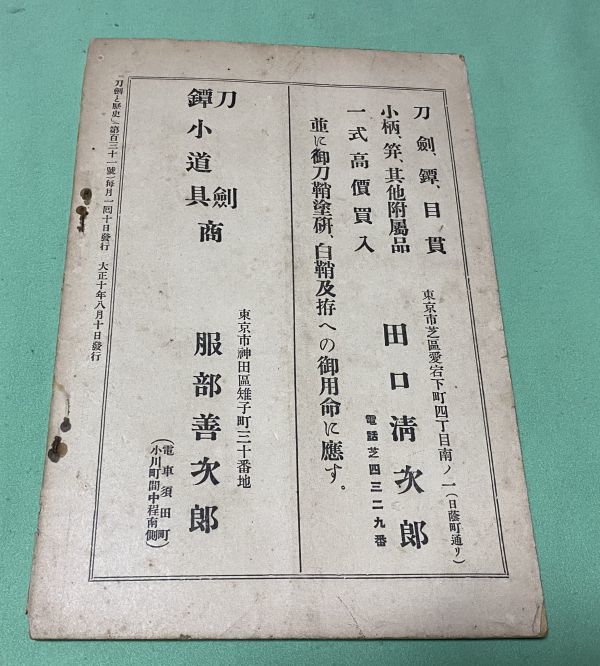 刀劍、鐔、目貫
小柄、笄、其他附屬品
一式高價買入
並に御刀鞘塗研、白鞘及拵への御用命に應す。
東京市芝區愛宕下町四丁目南ノ一(日蔭町通リ)
田口淸次郎
電話芝四三二九番
刀劍
鐔小道具商
東京市神田區雉子町三十番地
服部善次郎
(電車須田町
小川町間中程南側)
「刀劍と歷史」第百三十一號(每月一回十日發行 大正十年八月十日發行